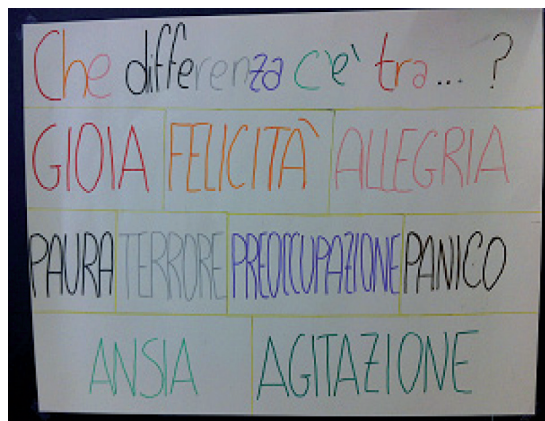 Che differenza c'è tra... ?
GIOIA FELICITÀ ALLEGRIA
PAURA TERRORE PREOCCUPAZIONE PANICO
ANSIA AGITAZIONE